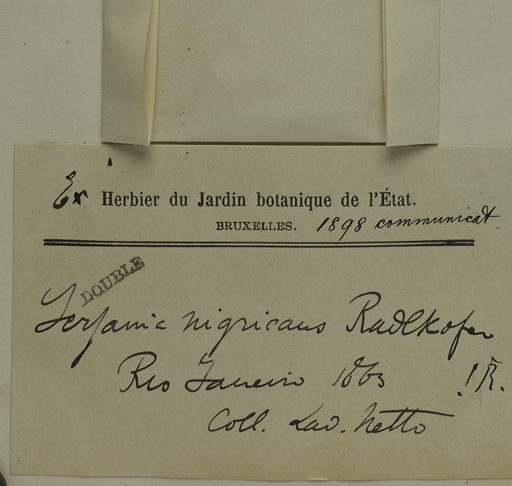 Ex Herbier du Jardin botanique de l'État.
BRUXELLES. 1898 communicat.
DOUBLE
Serjania nigricans Radlkofer
Rio Janeiro 1863 !R.
Coll. Lad. Netto